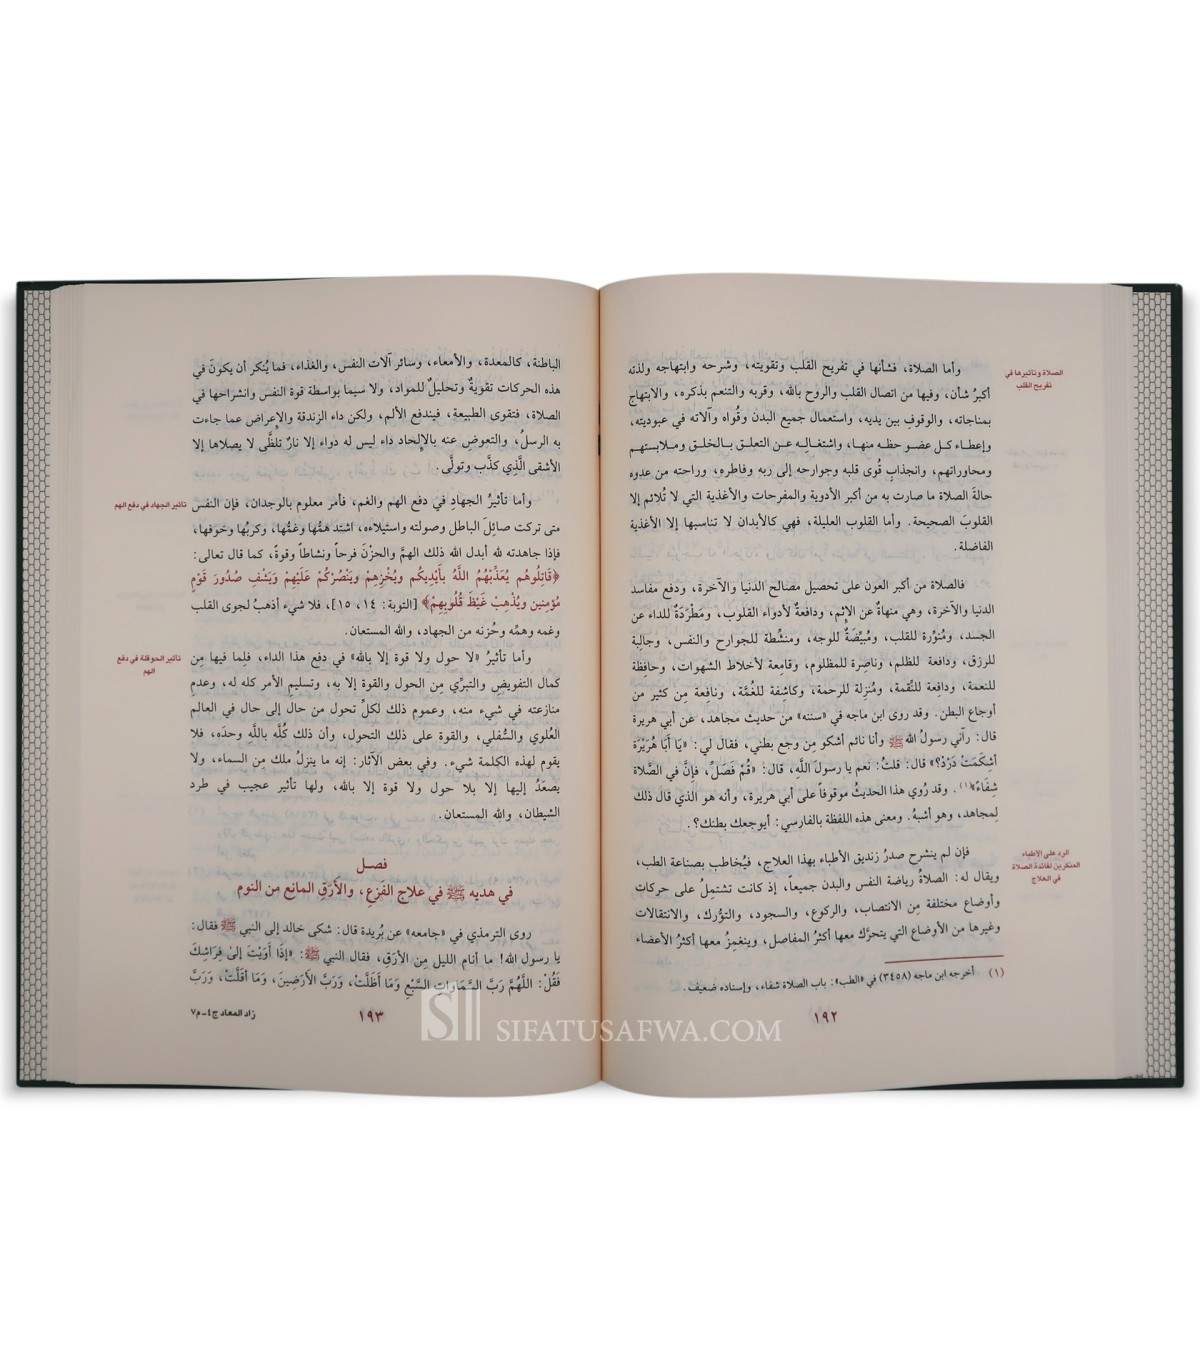 وأما الصلاة، فشأنها في تفريح القلب وتقويته، وشرحه وابتهاجه ولذته
أكبرُ شأن، وفيها من اتصال القلب والروح بالله، وقربه والتنعم بذكره، والابتهاج
بمناجاته، والوقوفِ بين يديه، واستعمالِ جميع البدن وقُواه وآلاته في عبوديته،
وإعطاء كل عضو حظه منها، واشتغالِه عن التعلق بالخلق وملابستهم
ومحاوراتهم، وانجذابِ قُوى قلبه وجوارحه إلى ربه وفاطره، وراحته من عدوه
حالةَ الصلاة ما صارت به من أكبر الأدوية والمفرحات والأغذية التي لا تُلائم إلا
القلوبَ الصحيحة. وأما القلوب العليلة، فهي كالأبدان لا تناسبها إلا الأغذية
الفاضلة.
الصلاة وتأثيرها في
تفريح القلب
فالصلاة من أكبر العون على تحصيل مصالح الدنيا والآخرة، ودفع مفاسد
الدنيا والآخرة، وهي منهاةٌ عن الإثم، ودافعةٌ لأدواء القلوب، ومَطْرَدَةٌ للداء عن
الجسد، ومُنوِّرة للقلب، ومُبيِّضَةٌ للوجه، ومنشِّطة للجوارح والنفس، وجالِبة
للرزق، ودافعة للظلم، وناصِرة للمظلوم، وقامِعة لأخلاط الشهوات، وحافِظة
للنعمة، ودافِعة للنِّقمة، ومُنزِلة للرحمة، وكاشفة للغُمَّة، ونافِعة مِن كثير من
أوجاع البطن. وقد روى ابن ماجه في «سننه» من حديث مجاهد، عن أبي هريرة
قال: رآني رسولُ الله ﷺ وأنا نائم أشكو مِن وجع بطني، فقال لي: «يَا أَبَا هُرَيْرَةَ
أشِكَمَتْ دَرْدْ؟» قال: قلتُ: نعم يا رسولَ اللَّهِ، قال: «قُمْ فَصَلِّ، فإنَّ في الصَّلاة
شِفَاءً»(١). وقد رُوي هذا الحديثُ موقوفاً على أبي هريرة، وأنه هو الذي قال ذلك
لِمجاهد، وهو أشبهُ. ومعنى هذه اللفظة بالفارسي: أيوجعك بطنك؟.
فإن لم ينشرح صدرُ زنديق الأطباء بهذا العلاج، فيُخاطب بصناعة الطب،
ويقال له: الصلاةُ رياضة النفس والبدن جميعاً، إذ كانت تشتمِلُ على حركات
وأوضاع مختلفة مِن الانتصاب، والركوع، والسجود، والتورُّك، والانتقالات
وغيرها من الأوضاع التي يتحرَّك معها أكثرُ المفاصل، وينغمِزُ معها أكثرُ الأعضاء
الرد على الأطباء
المنكرين لفائدة الصلاة
في العلاج
(١) أخرجه ابن ماجه (٣٤٥٨) في «الطب»: باب الصلاة شفاء، وإسناده ضعيف.
١٩٢
الباطنة، كالمعدة، والأمعاء، وسائر آلات النفس، والغذاء، فما يُنكر أن يكونَ في
هذه الحركات تقويةٌ وتحليلٌ للمواد، ولا سيما بواسطة قوة النفس وانشراحها في
الصلاة، فتقوى الطبيعة، فيندفع الألم، ولكن داء الزندقة والإعراض عما جاءت
به الرسلُ، والتعوضِ عنه بالإلحاد داء ليس له دواء إلا نارٌ تلظَّى لا يصلاها إلا
الأشقى الَّذِي كذَّب وتولَّى.
وأما تأثيرُ الجهادِ في دفع الهم والغم، فأمر معلوم بالوجدان، فإن النفس
متى تركت صائِلَ الباطل وصولته واستيلاءه، اشتد همُّها وغمُّها، وكربُها وخوفها،
فإذا جاهدته لله أبدل الله ذلك الهمَّ والحزْنَ فرحاً ونشاطاً وقوةً، كما قال تعالى:
﴿قَاتِلُوهُم يُعَذِّبْهُمُ اللَّهُ بأَيْدِيكُم ويُخْزِهِمْ ويَنْصُرْكُمْ عَلَيْهِمْ ويَشْفِ صُدُورَ قَوْمٍ
مُؤْمِنين ويُذْهِبْ غَيْظَ قُلُوبِهِمْ﴾ [التوبة: ١٤، ١٥]، فلا شيء أذهبُ لجوى القلب
وغمه وهمِّه وحُزنه من الجهاد، والله المستعان.
تأثير الجهاد في دفع الهم
وأما تأثيرُ «لا حول ولا قوة إلا بالله» في دفع هذا الداء، فلِما فيها مِن
كمال التفويضِ والتبرِّي مِن الحول والقوة إلا به، وتسليمِ الأمر كله له، وعدمِ
منازعته في شيء منه، وعموم ذلك لكلِّ تحول من حال إلى حال في العالم
العُلوي والسُّفلي، والقوة على ذلك التحول، وأن ذلك كُلَّه باللَّهِ وحدَه، فلا
يقوم لهذه الكلمة شيء. وفي بعض الآثار: إنه ما ينزلُ ملك مِن السماء، ولا
يصعَدُ إليها إلا بلا حول ولا قوة إلا بالله، ولها تأثير عجيب في طرد
الشيطان، والله المستعان.
تأثير الحوقلة في دفع
الهم
فصل
في هديه ﷺ في علاج الفَزَعِ، والأرَقِ المانع من النوم
روى الترمذي في «جامعه» عن بُريدة قال: شكى خالد إلى النبي ﷺ فقال:
يا رسول الله! ما أنام الليل مِن الأرَقِ، فقال النبي ﷺ: «إذَا أَوَيْتَ إلىٰ فِرَاشِكَ
فَقُلْ: اللَّهُمَّ رَبَّ السَّمَاوَاتِ السَّبْعِ وَمَا أَظَلَّتْ، وَرَبَّ الأَرَضِينَ، وَمَا أَقَلَّتْ، وَرَبَّ
١٩٣
زاد المعاد ج٤-م٧
SIFATUSAFWA.COM